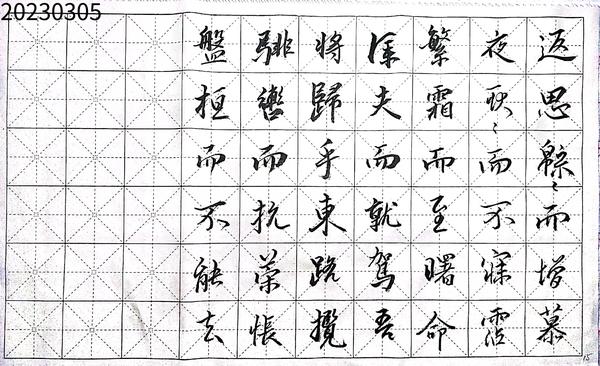 20230305
返思緜〻而增慕
夜耿〻而不寐霑
繁霜而至曙命
僕夫而就駕吾
將歸乎東路攬
騑轡而抗策悵
盤桓而不能去
15